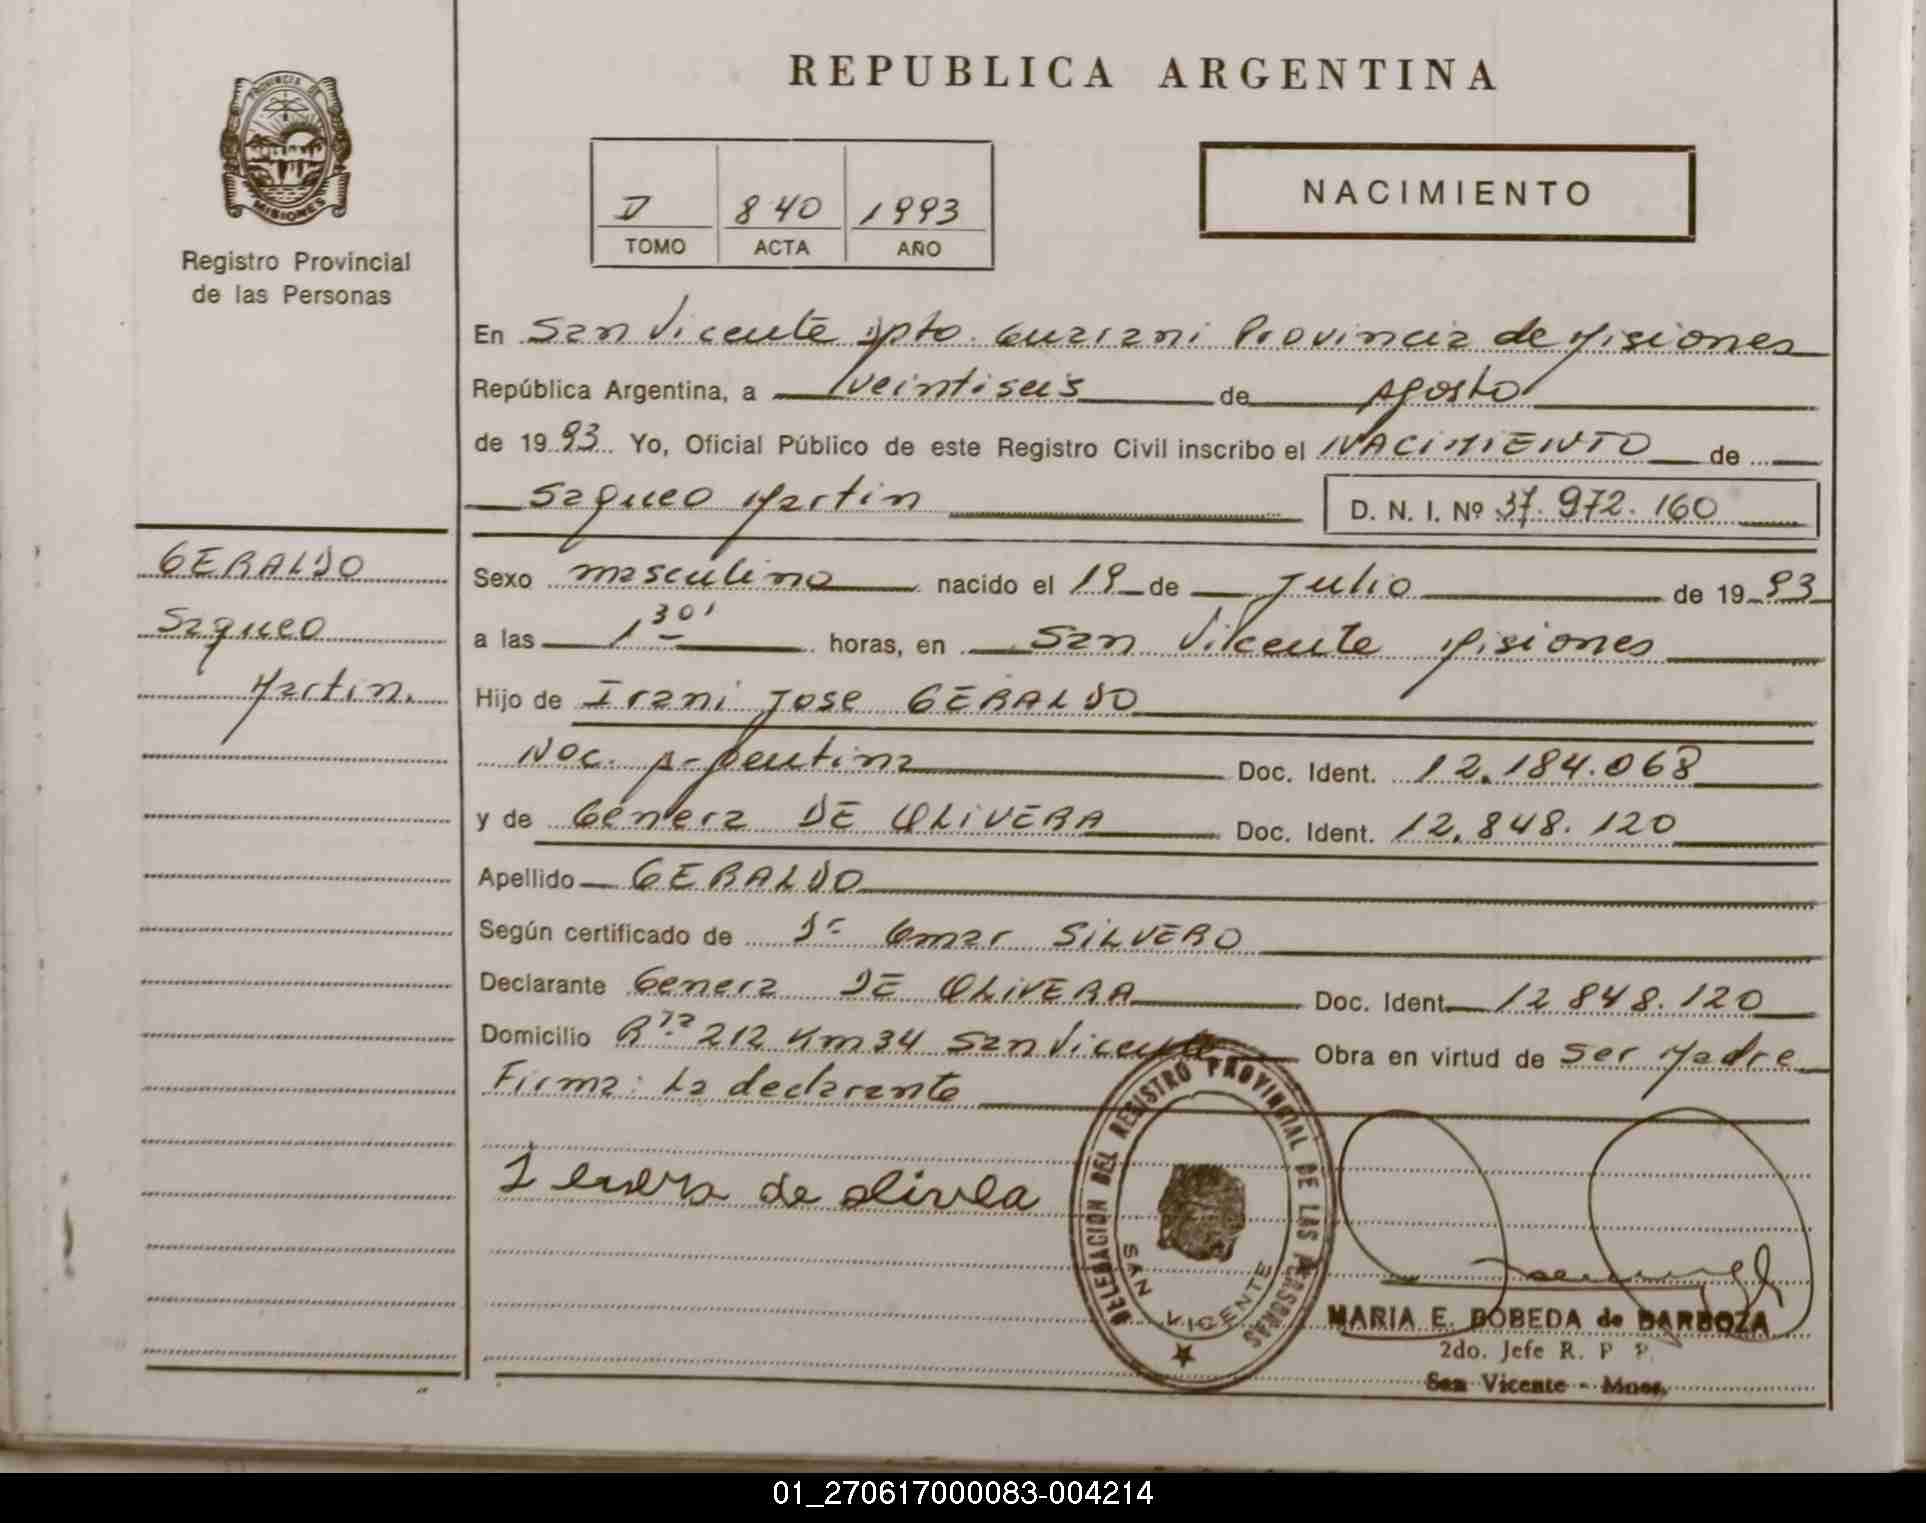 REPUBLICA ARGENTINA
PROVINCIA DE
MISIONES
Registro Provincial
de las Personas
D 840 1993
TOMO ACTA AÑO
NACIMIENTO
En San Vicente Dpto. Guarani Provincia de Misiones
República Argentina, a veintiseis de Agosto
de 1993 Yo, Oficial Público de este Registro Civil inscribo el NACIMIENTO de
Saqueo Martin D. N. I. Nº 37.972.160
GERALDO
Saqueo
Martin.
Sexo masculino nacido el 19 de Julio de 1993
a las 1 30' horas, en San Vicente Misiones
Hijo de Irani Jose GERALDO
Nac. Argentina Doc. Ident. 12.184.068
y de Genera DE OLIVERA Doc. Ident. 12.848.120
Apellido GERALDO
Según certificado de Dr Omar SILVERO
Declarante Genera DE OLIVERA Doc. Ident. 12848.120
Domicilio Rta 212 Km 34 San Vicente Obra en virtud de ser Madre
Firma: La declarante
de
DELEGACION DEL REGISTRO PROVINCIAL DE LAS PERSONAS
SAN VICENTE
MARIA E. BOBEDA de BARBOZA
2do. Jefe R. P. P.
San Vicente - Mnes.
01_270617000083-004214